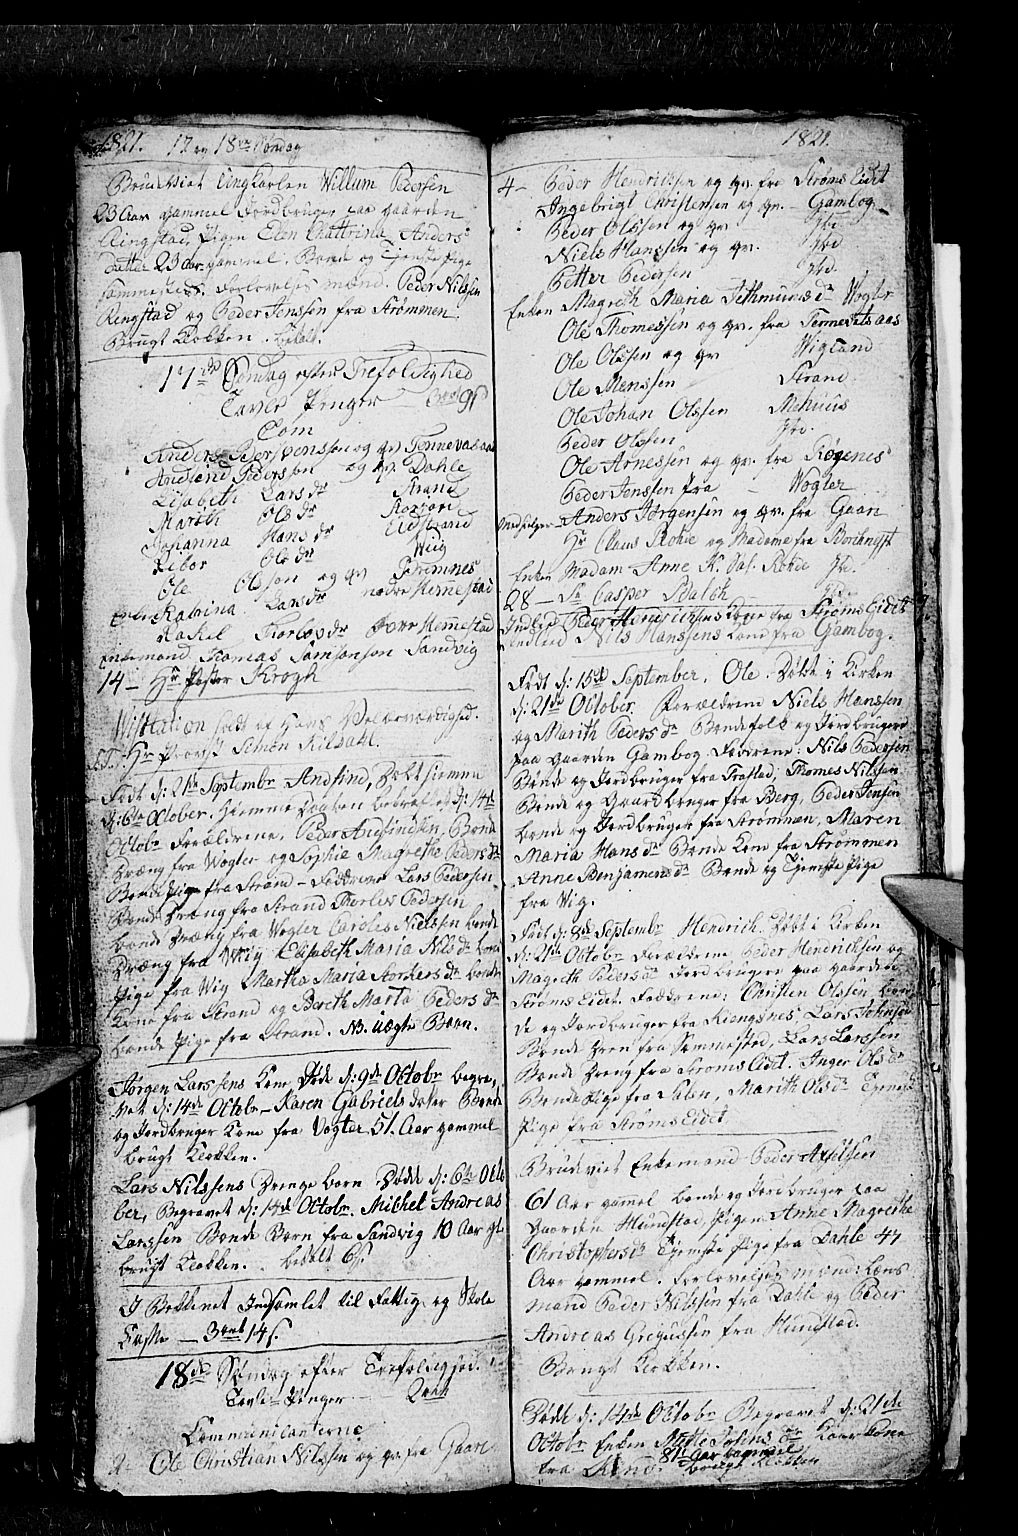 1821. 17 og 18de Søndag
Brudeviet Ungkarlen Willum Pedersen
23 Aar gammel Jordbruger paa gaarden
Ringstad, Pigen Elen Cattrina Anders
datter 23 aar gammel. Bonde og Tjeneste pige
sammesteds. Forlovelses mænd. Peder Nilssen
Ringstad og Peder Jenssen fra Strømmen.
Brugt Klokken. betalt.
17de Søndag efter Trefoldighed
Tavle Penger
Com
Anders Jespenssen og qv. Tennevasaas
Andsind Pederssen og qv. Dahle
Lisabeth Larsdr Strand
Marith Olsdr
Johanna Hansdr Eidstrand
Rebor Olsdr Wiig
Ole Olssen og qv Bremnes
Enken Katrina Larsdr nedre Hennestad
Rakel Thorlevsdr Over Hennestad
Enkemand Thomas Tomsonson Sandvig
14 - Hr Pastor Krogh
Wisitation holdt af Hans Velærværdighed
Hr Provst Simon Kildahl
Født d: 21de Septembr Andsind, døbt hiemme
d: 6te October, Hiemme daaben bekræftet d: 14d
Octobr Forældrene, Peder Andsindsen, Bonde
Dræng fra Vogter og Sophie Magrethe Pedersdr
Bonde Pige fra Strand - Fadderne Lars Pedersen
Bonde Dræng fra Strand Thorlev Pedersen
bonde Dræng fra Vogter Carolus Nielssen bonde
Dræng fra Wiig Elisabeth Maria Nilsdr bonde
Pige fra Wiig Martha Maria Hordersdr bonde
Kone fra Strand og Bereth Marta Pedersdr
bonde Pige fra Strand. NB. Uægte Barn.
Jørgen Larssens Kone Døde d: 9de Octobr begra
vet d: 14de Octobr - Karen Gabriels dater Bonde
og Jordbruger Kone fra Vogter 51. Aar gammel
brugt Klokken.
Lars Nilssens Drenge barn Døde d: 6te Octo
ber, Begravet d: 14de Octobr. Michel Andreas
Larssen Bonde Barn fra Sandvig 10 Aar gl
brugt Klokken. betalt 6s.
I Bekkenet Indsamlet til Fattig og Skole
Casse - 3ort 14s.
18de Søndag efter Trefoldighed.
Tavle Penger 2ort
Communicanterne
2- Ole Christian Nilssen og qv. fra Gaare
1821.
4- Peder Hendrichsen og qv. fra Strøms Eidet
Ingebrigt Christensen og qv. - Gambog
Peder Olssen og qv. Ibd
Niels Hanssen og qv. Ibd
Petter Pedersen Ibd.
Enken Magreth Maria Tethmunsdr Vogter
Ole Thomessen og qv. fra Tennevatsaas
Ole Olssen og qv Wigland
Ole Monssen Strand
Ole Johan Olssen Melnuus
Peder Olssen Ibd.
Ole Arnessen og qv. fra Røgenes
Peder Jenssen fra - Vogter
Medhielper Anders Jørgensen og qv. fra Gaare
Hr Claus Rohde og Madame fra Borkenes
Enken Madam Anne K. Sal. Rohde Ibd.
28 - Sr Casper Balch Ibd.
Indled Peder Hendrichsens Kone fra Strøms Eidet
Indled Nils Hanssens Kone fra Gambog.
Født d: 15de September. Ole. Døbt i Kirken
d: 21de October. Forældrene Niels Hanssen
og Marith Pedersdr Bondefolk og Jordbrugere
paa Gaarden Gambog Fadderne: Nils Pedersen
Bonde og Jordbruger fra Trastad, Thomes Nilssen
Bonde og Gaardbruger fra Berg, Peder Jensen
bonde og Jordbruger fra Strømmen, Maren
Maria Hansdr Bonde Kone fra Strømmen
Anne Benjamensdr Bonde og Tjeneste Pige
fra Vig.
Født d: 8de Septembr Hendrich. Døbt i Kirken
d: 21de Octobr Forældrene Peder Hendrichsen og
Mageth Pedersdr Jordbrugere paa gaarden
Strøms Eidet. Fadderne: Christen Olssen bon
de og Jordbruger fra Kiengsnes Lars Johnsen
Bonde Dren fra Semmestad, Lars Larssen
Bonde Dreng fra Stroms Eidet. Inger Olsdr
Bonde Pige fra Salen, Marith Olsdr Tjeneste
Pige fra Stroms Eidet.
Brudeviet Enkemand Peder Axelsen
61 Aar gamel bonde og Jordbruger paa
Gaarden Hundstad, Pigen Anne Magrethe
Christophersdr Tjeneste Pige fra Dahle 44
Aar gammel. Forlovelses mænd: Læns
mand Peder Nilssen fra Dahle og Peder
Andreas Gregussen fra Hundstad.
Brugt Klokken.
Døde d: 14de October Begravet d: 21de
Octobr Enken Mette Johnsdr Kaar Kone
fra Lund. 81 Aar Gammel
brugt Klokken